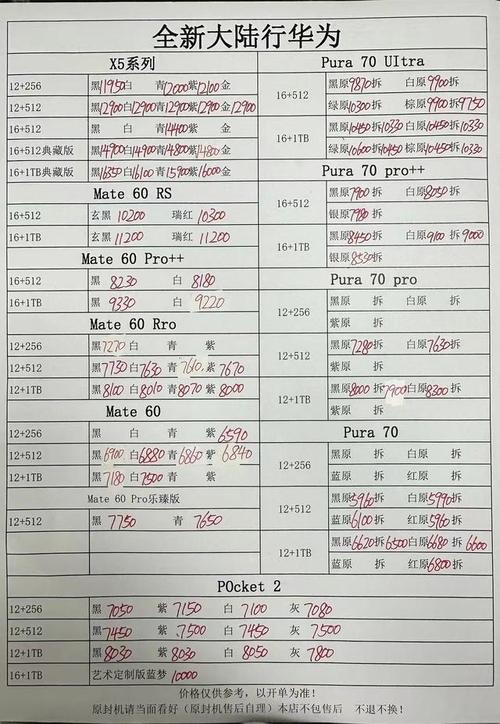 全新大陆行华为
X5系列
12+256 黑11950白 青12000紫12100金
12+512 黑12900白12900青12900紫12900金12900
16+512 黑 白 青14400紫 金
16+512典藏版 黑14900白14900青14800紫14800金
16+1TB典藏版 黑16350白16100青15900紫16000金
Mate 60 RS
16+512 玄黑 10200 瑞红 10300
16+1TB 玄黑 11200 瑞红 11200
Mate 60 Pro++
16+512 黑 8230 白 8180
16+1TB 黑 9330 白 9220
Mate 60 Rro
12+256 黑7270白 青 紫
12+512 黑7730白7630青7610紫7670
12+1TB 黑8100白8010青8070紫8000
Mate 60
12+256 黑 白 青 紫6590
12+512 黑6900白6880青6860紫6840
12+1TB 黑7180白7500青 紫
Mate 60 Pro乐臻版
12+512 黑 7750 青 7650
Pura 70 UItra
16+512 黑原9870拆 白原9900拆
绿原10300拆 棕原9900拆9750
16+1TB 黑原10450拆10330白原10450拆10330
绿原10600拆10450棕原10450拆10330
Pura 70 pro++
16+512 黑原7900拆 白原8050拆
银原7980拆
16+1TB 黑原8450拆 白原9100拆9000
银原8530拆
Pura 70 pro
12+256 黑原 拆 白原 拆
紫原 拆
12+512 黑原7280拆 白原7630拆
紫原 拆
12+1TB 黑原8000拆7900白原8300拆
紫原 拆
Pura 70
12+256 黑原 拆 白原 拆
蓝原 拆 红原 拆
12+512 黑原5960拆 白原5990拆
蓝原6100拆 红原5960拆
12+1TB 黑原6620拆6500白原6680拆6600
蓝原 拆 红原6800拆
POcket 2
12+256 黑 7050 紫 7150 白 7100 灰 7080
12+512 黑 7450 紫 7500 白 7450 灰 7500
12+1TB 黑 8030 紫 8030 白 8050 灰 7800
16+1TB 艺术定制版蓝梦 10000
价格仅供参考，以开单为准!
原封机请当面看好（原封机售后自理）本店不包售后 不退不换!